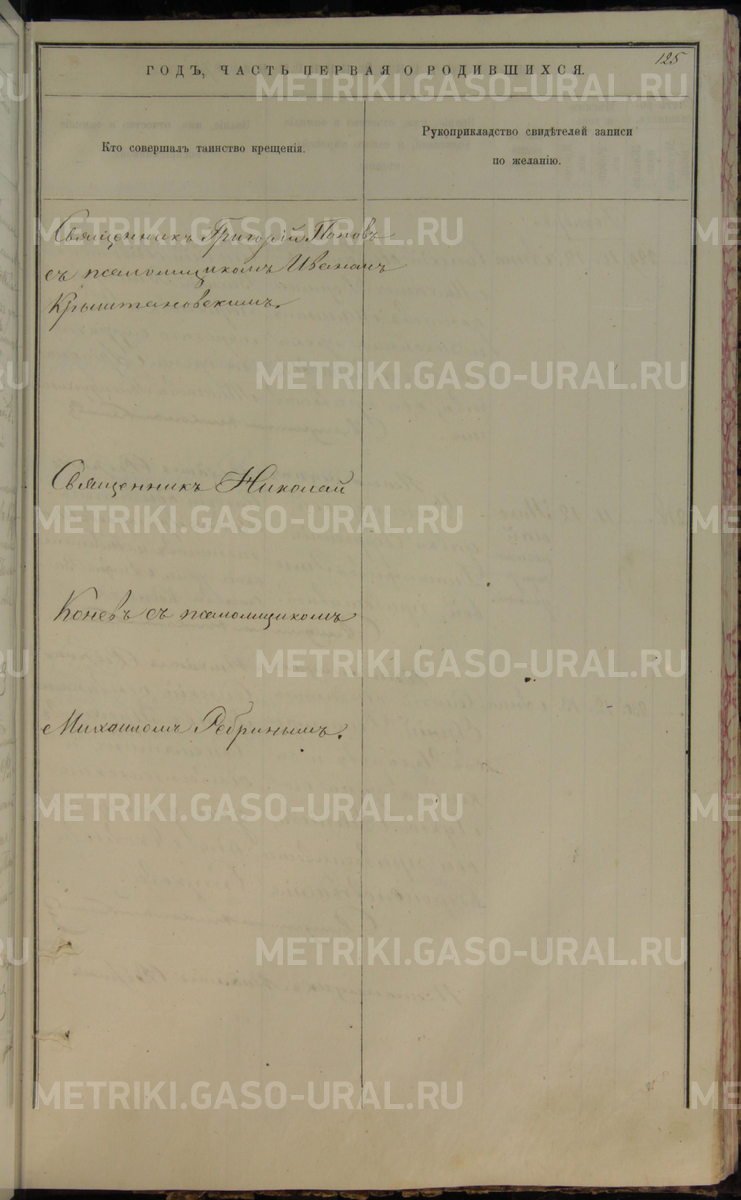 125
ГОДЪ, ЧАСТЬ ПЕРВАЯ О РОДИВШИХСЯ.
Кто совершалъ таинство крещенія.
Рукоприкладство свидѣтелей записи
по желанію.
Священникъ Григорій Поповъ
съ псаломщикомъ Иваномъ
Крыштановскимъ.
Священникъ Николай
Коневъ съ псаломщикомъ
Михаиломъ Ребринымъ.
METRIKI.GASO-URAL.RU